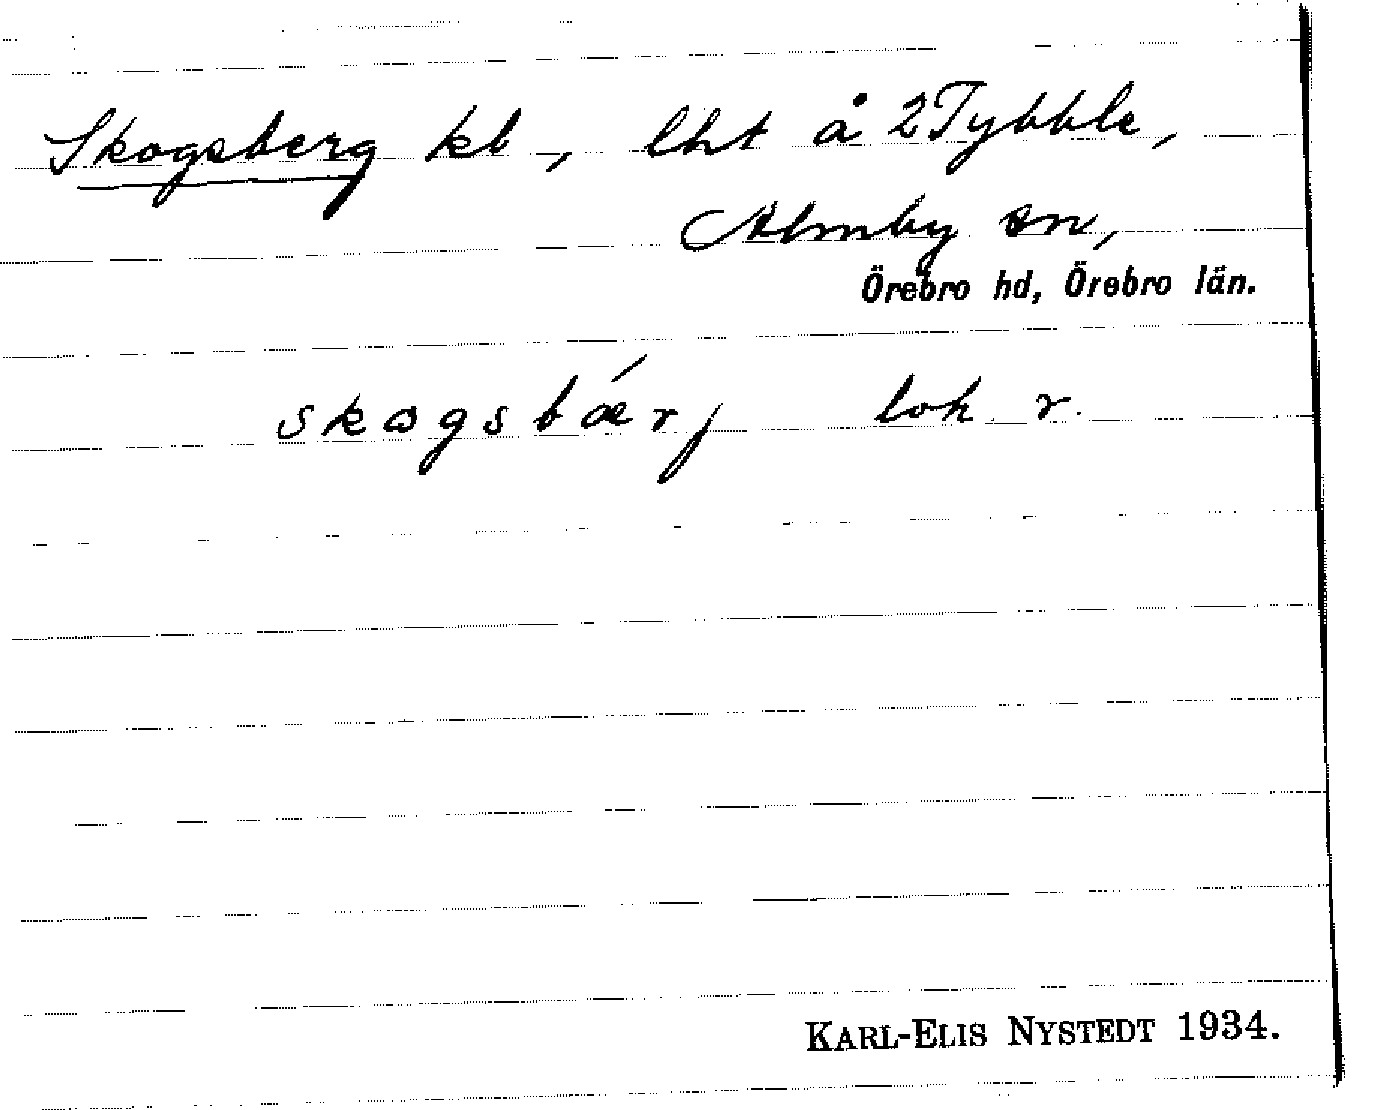 Skogsberg kb, lht å 2 Tybble,
Almby sn,
Örebro hd, Örebro län.
skogsbǽrj lok r.
KARL-ELIS NYSTEDT 1934.